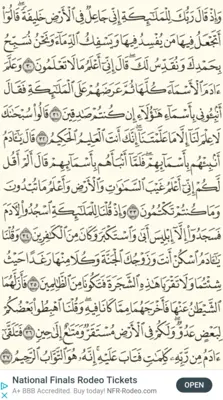 وَإِذْ قَالَ رَبُّكَ لِلْمَلَٰٓئِكَةِ إِنِّى جَاعِلٌ فِى ٱلْأَرْضِ خَلِيفَةً ۖ قَالُوٓا۟
أَتَجْعَلُ فِيهَا مَن يُفْسِدُ فِيهَا وَيَسْفِكُ ٱلدِّمَآءَ وَنَحْنُ نُسَبِّحُ
بِحَمْدِكَ وَنُقَدِّسُ لَكَ ۖ قَالَ إِنِّىٓ أَعْلَمُ مَا لَا تَعْلَمُونَ ٣٠ وَعَلَّمَ
ءَادَمَ ٱلْأَسْمَآءَ كُلَّهَا ثُمَّ عَرَضَهُمْ عَلَى ٱلْمَلَٰٓئِكَةِ فَقَالَ
أَنۢبِـُٔونِى بِأَسْمَآءِ هَٰٓؤُلَآءِ إِن كُنتُمْ صَٰدِقِينَ ٣١ قَالُوا۟ سُبْحَٰنَكَ
لَا عِلْمَ لَنَآ إِلَّا مَا عَلَّمْتَنَآ ۖ إِنَّكَ أَنتَ ٱلْعَلِيمُ ٱلْحَكِيمُ ٣٢ قَالَ يَٰٓـَٔادَمُ
أَنۢبِئْهُم بِأَسْمَآئِهِمْ ۖ فَلَمَّآ أَنۢبَأَهُم بِأَسْمَآئِهِمْ قَالَ أَلَمْ أَقُل
لَّكُمْ إِنِّىٓ أَعْلَمُ غَيْبَ ٱلسَّمَٰوَٰتِ وَٱلْأَرْضِ وَأَعْلَمُ مَا تُبْدُونَ
وَمَا كُنتُمْ تَكْتُمُونَ ٣٣ وَإِذْ قُلْنَا لِلْمَلَٰٓئِكَةِ ٱسْجُدُوا۟ لِـَٔادَمَ
فَسَجَدُوٓا۟ إِلَّآ إِبْلِيسَ أَبَىٰ وَٱسْتَكْبَرَ وَكَانَ مِنَ ٱلْكَٰفِرِينَ ٣٤ وَقُلْنَا
يَٰٓـَٔادَمُ ٱسْكُنْ أَنتَ وَزَوْجُكَ ٱلْجَنَّةَ وَكُلَا مِنْهَا رَغَدًا حَيْثُ
شِئْتُمَا وَلَا تَقْرَبَا هَٰذِهِ ٱلشَّجَرَةَ فَتَكُونَا مِنَ ٱلظَّٰلِمِينَ ٣٥ فَأَزَلَّهُمَا
ٱلشَّيْطَٰنُ عَنْهَا فَأَخْرَجَهُمَا مِمَّا كَانَا فِيهِ ۖ وَقُلْنَا ٱهْبِطُوا۟ بَعْضُكُمْ
لِبَعْضٍ عَدُوٌّ ۖ وَلَكُمْ فِى ٱلْأَرْضِ مُسْتَقَرٌّ وَمَتَٰعٌ إِلَىٰ حِينٍ ٣٦ فَتَلَقَّىٰٓ
ءَادَمُ مِن رَّبِّهِۦ كَلِمَٰتٍ فَتَابَ عَلَيْهِ ۚ إِنَّهُۥ هُوَ ٱلتَّوَّابُ ٱلرَّحِيمُ ٣٧
National Finals Rodeo Tickets
A+ BBB Accredited. Buy today! NFR-Rodeo.com
OPEN